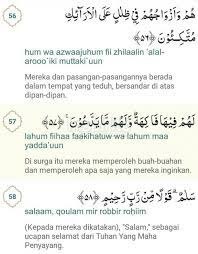 56
هُمْ وَأَزْوَاجُهُمْ فِي ظِلَالٍ عَلَى الْأَرَائِكِ
مُتَّكِئُونَ ﴿٥٦﴾
hum wa azwaajuhum fii zhilaalin 'alal-
arooo`iki muttaki`uun
Mereka dan pasangan-pasangannya berada
dalam tempat yang teduh, bersandar di atas
dipan-dipan.
57
لَهُمْ فِيهَا فَاكِهَةٌ وَلَهُمْ مَا يَدَّعُونَ ﴿٥٧﴾
lahum fiihaa faakihatuw wa lahum maa
yadda'uun
Di surga itu mereka memperoleh buah-buahan
dan memperoleh apa saja yang mereka inginkan.
58
سَلَامٌ قَوْلًا مِنْ رَبٍّ رَحِيمٍ ﴿٥٨﴾
salaam, qoulam mir robbir rohiim
(Kepada mereka dikatakan), "Salam," sebagai
ucapan selamat dari Tuhan Yang Maha
Penyayang.